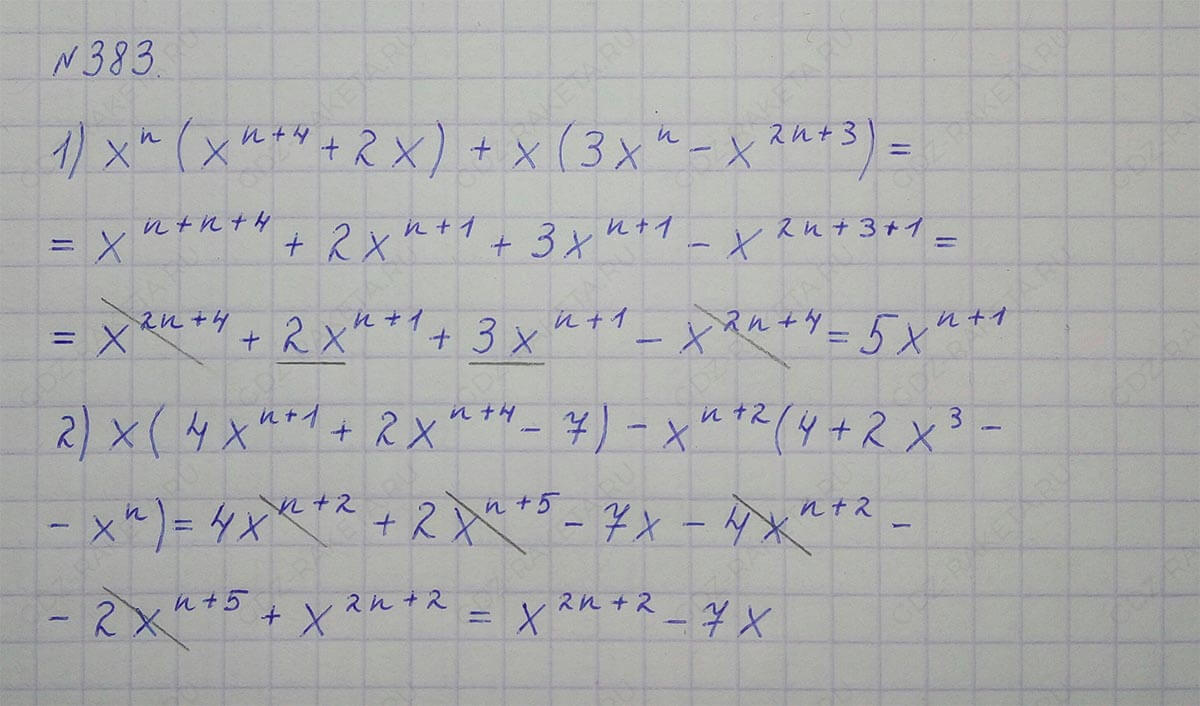 №383.
1) xⁿ(xⁿ⁺⁴ + 2x) + x(3xⁿ - x²ⁿ⁺³) =
= xⁿ⁺ⁿ⁺⁴ + 2xⁿ⁺¹ + 3xⁿ⁺¹ - x²ⁿ⁺³⁺¹ =
= x²ⁿ⁺⁴ + 2xⁿ⁺¹ + 3xⁿ⁺¹ - x²ⁿ⁺⁴ = 5xⁿ⁺¹
2) x(4xⁿ⁺¹ + 2xⁿ⁺⁴ - 7) - xⁿ⁺²(4 + 2x³ -
- xⁿ) = 4xⁿ⁺² + 2xⁿ⁺⁵ - 7x - 4xⁿ⁺² -
- 2xⁿ⁺⁵ + x²ⁿ⁺² = x²ⁿ⁺² - 7x
GDZ-RAKETA.RU